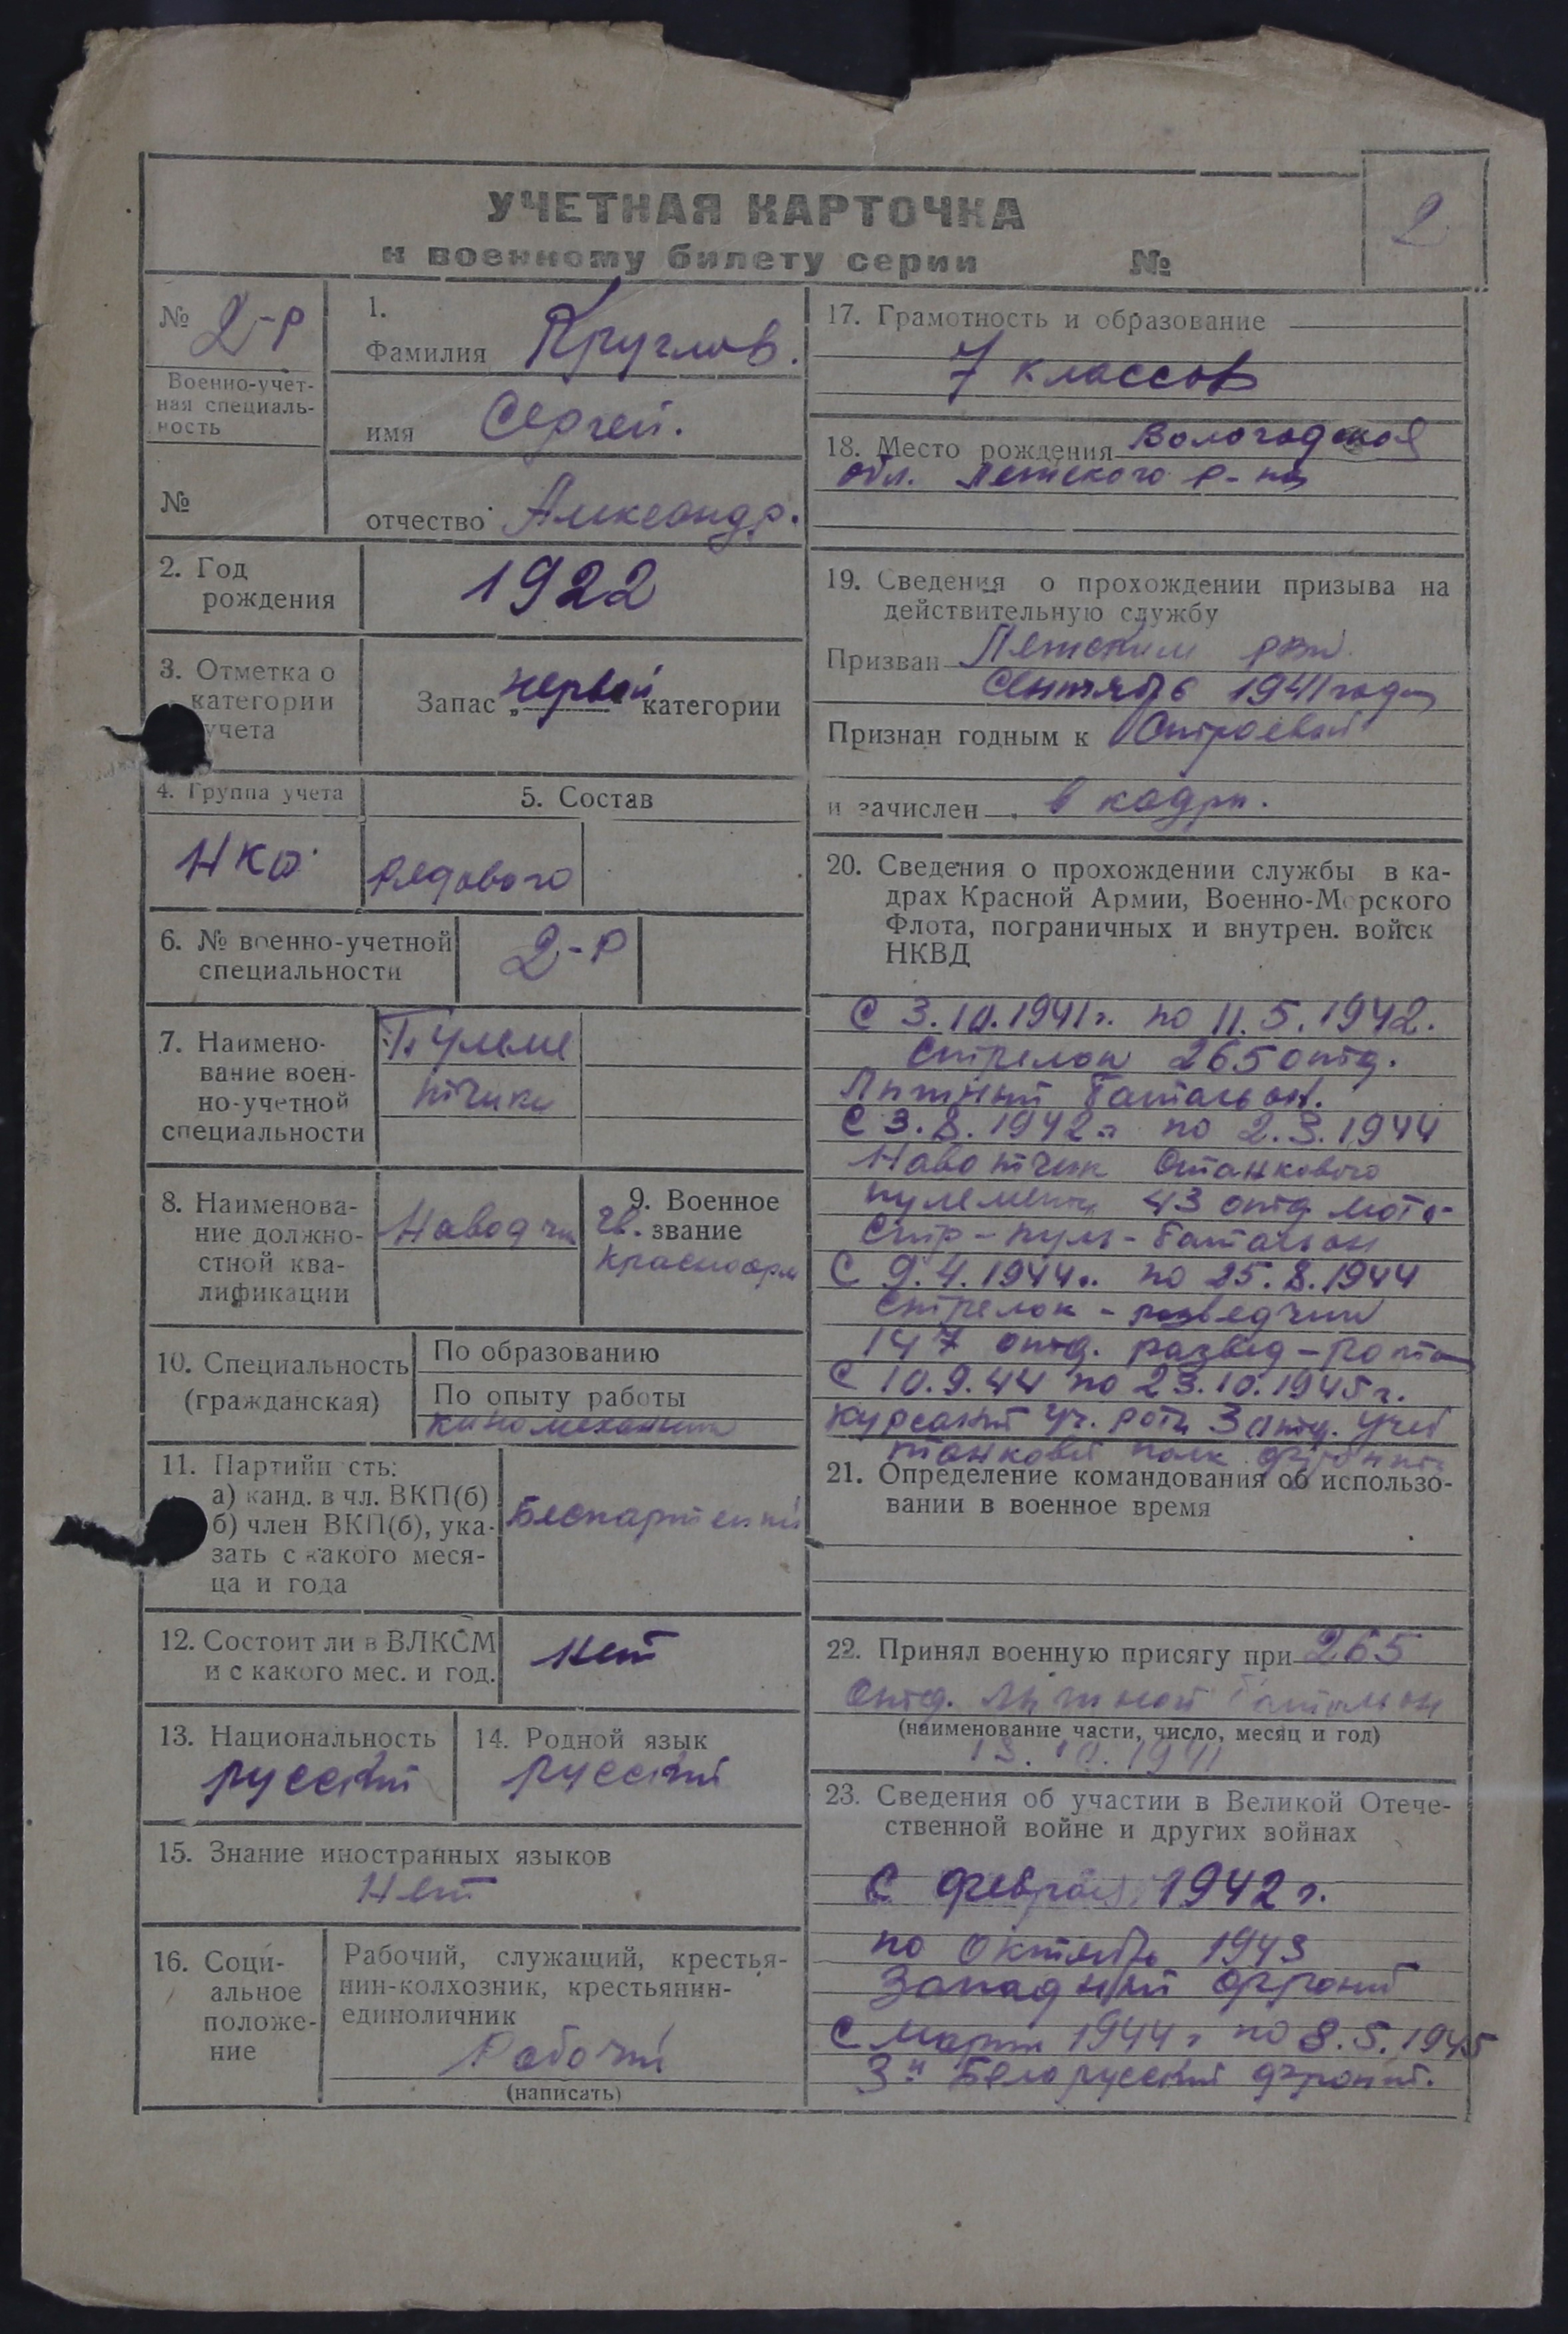 УЧЕТНАЯ КАРТОЧКА
к военному билету серии №
2
№ 2-Р
Военно-учет-
ная специаль-
ность
№
1.
Фамилия Круглов.
имя Сергей.
отчество Александр.
2. Год
рождения
1922
3. Отметка о
категории
учета
Запас „первой" категории
4. Группа учета
НКО
5. Состав
рядового
6. № военно-учетной
специальности
2-Р
7. Наимено-
вание воен-
но-учетной
специальности
Пулеме
тчики
8. Наименова-
ние должно-
стной ква-
лификации
Наводчи
9. Военное
звание
гв.
красноарм
10. Специальность
(гражданская)
По образованию
По опыту работы
киномеханик
11. Партийн сть:
а) канд. в чл. ВКП(б)
б) член ВКП(б), ука-
зать с какого меся-
ца и года
Беспартейный
12. Состоит ли в ВЛКСМ
и с какого мес. и год.
нет
13. Национальность
русский
14. Родной язык
русский
15. Знание иностранных языков
Нет
16. Соци-
альное
положе-
ние
Рабочий, служащий, крестья-
нин-колхозник, крестьянин-
единоличник
Рабочий
(написать)
17. Грамотность и образование
7 классов
18. Место рождения Вологодской
обл. Летского р-на
19. Сведения о прохождении призыва на
действительную службу
Призван Летским рвк.
Сентябрь 1941 года
Признан годным к Строевой
и зачислен в кадры.
20. Сведения о прохождении службы в ка-
драх Красной Армии, Военно-Морского
Флота, пограничных и внутрен. войск
НКВД
С 3.10.1941г. по 11.5.1942.
Стрелок 265 отд.
Лыжный батальон.
С 3.8.1942г. по 2.3.1944
Наводчик станкового
пулемета 43 отд. мото-
стр-пуль-батальон
С 9.4.1944г. по 25.8.1944
Стрелок-разведчик
147 отд. развед-рота
С 10.9.44 по 23.10.1945г.
курсант уч. роты 3 отд. учеб
танковый полк
21. Определение командования об использо-
вании в военное время
22. Принял военную присягу при 265
отд. лыжной батальон
(наименование части, число, месяц и год)
13.10.1941
23. Сведения об участии в Великой Отече-
ственной войне и других войнах
С февраля 1942 г.
по октябрь 1943
Западный фронт
С марта 1944 г по 8.5.1945
3й Белорусский фронт.